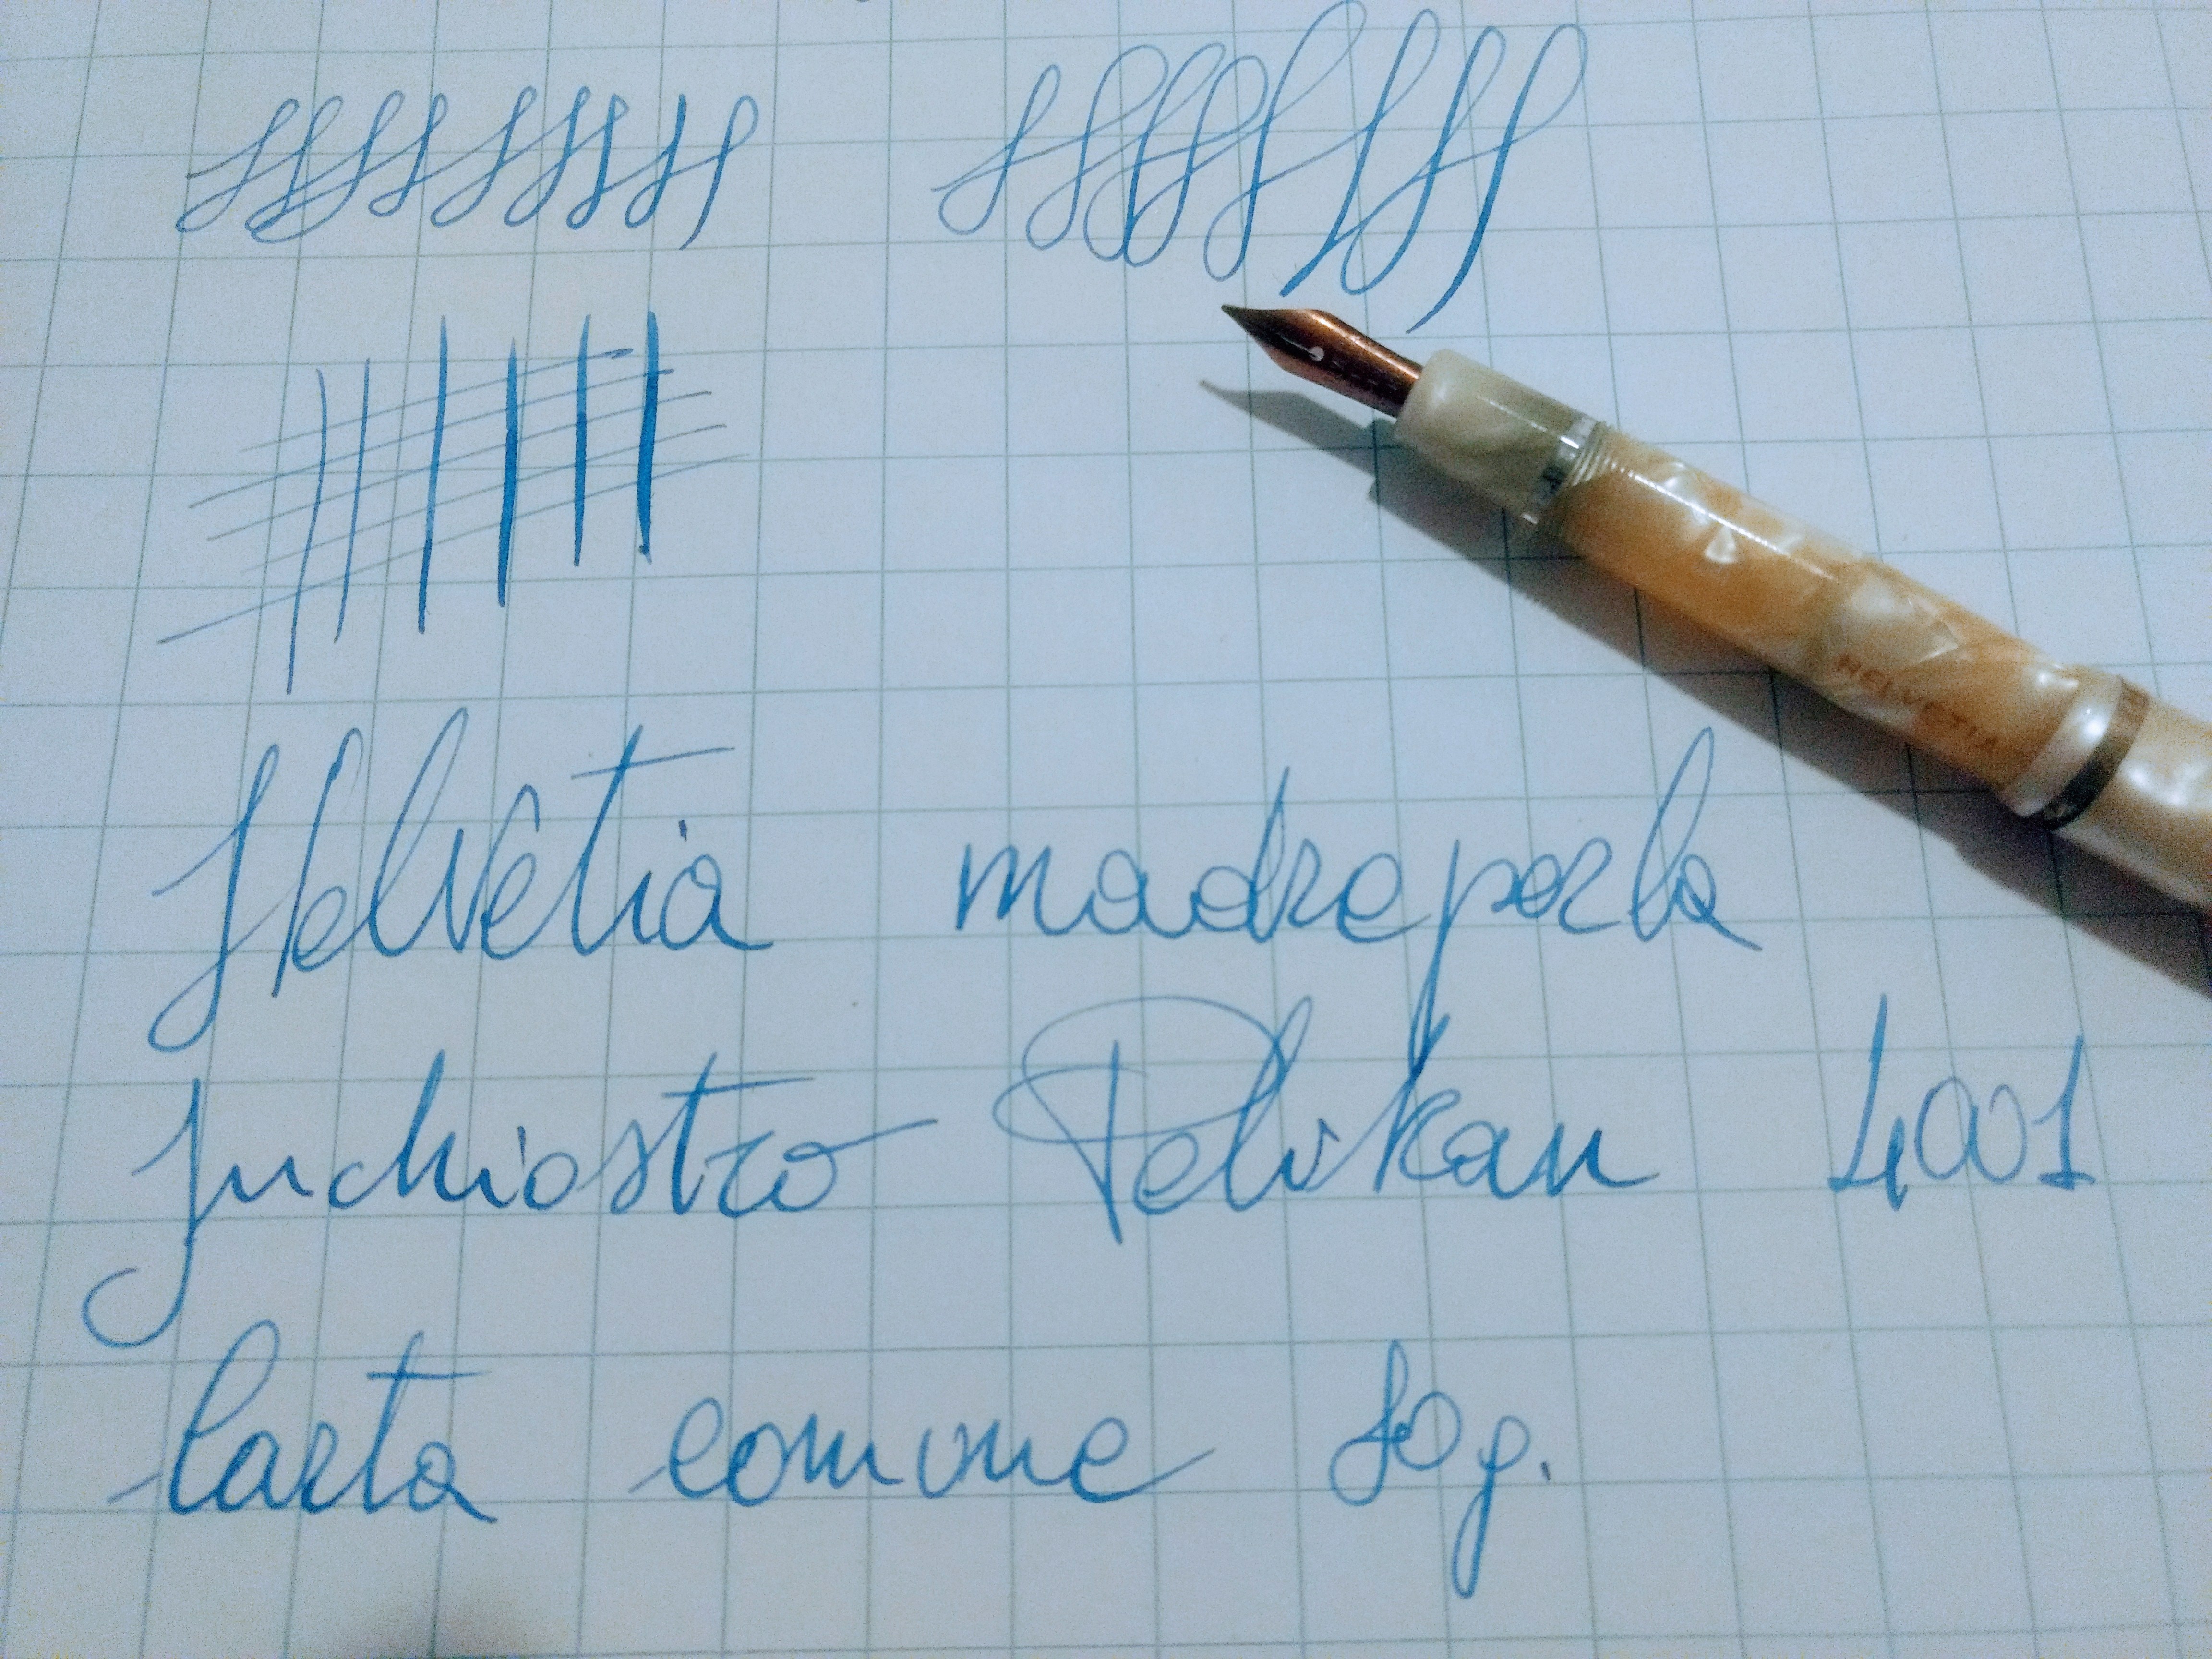 HELVETIA
Helvetia madreperla
Inchiostro Pelikan 4001
Carta comune 80 g.